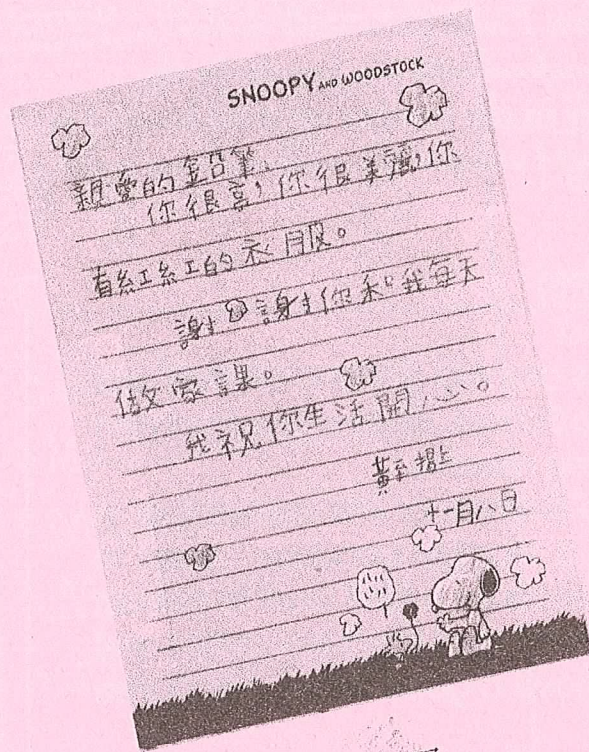 SNOOPY AND WOODSTOCK
親愛的鉛筆、
你很高,你很美麗,你
有紅紅的衣服。
謝謝你和我每天
做家課。
我祝你生活開心。
黃 上
十一月八日